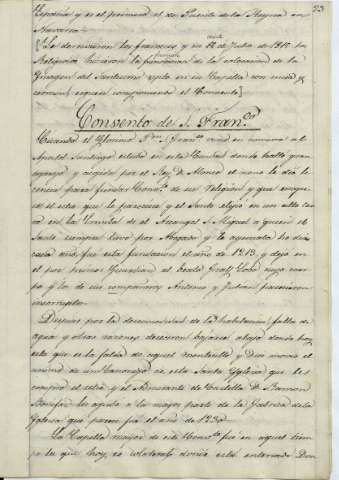 53
Española y es el primero el de Puente de la Reyna en
Navarra
[Le derrivaron los franceses y en 12 de Julio de 1815 los
Religiosos hicieron la funcion de la colocacion de la
Imagen del Santisimo
siguen componiendo el Convento]
Convento de S. Fran.co
Cuando el Glorioso P. S. Fran.co vino en romeria al
Apostol Santiago estubo en esta Ciudad donde halló gran
agasajo y acogida por el Rey D. Alonso el cual le dio li
cencia para fundar Conv.to de su Religion y que eligie
se el sitio que le pareciese y el Santo elijió en un alto cer
ca en la Hermita de el Arcangel S. Miguel a quien el
Santo siempre tuvo por Abogado y le ayunaba
cada año, fue esta fundacion el año de 1213 y dejó en
el por primer Guardian al beato
po y los de sus compañeros Antonio y Julian parecieron
incorruptos.
Despues por la descomodidad de la habitacion, falta de
agua y otras razones decidieron bajarse abajo donde hoy
esta que es la falda de aquel montecillo y Dios movió el
animo de un Canonigo de esta Santa Yglesia que les
compró el sitio y el Almirante de Castilla D. Ramon
Bonifaz les ayudó a la mayor parte de la fabrica de la
Yglesia que parece fue el año de 1230
La Capilla mayor de este Conv.to fue en aquel tiem
po la que hoy es colateral donde está enterrado Don